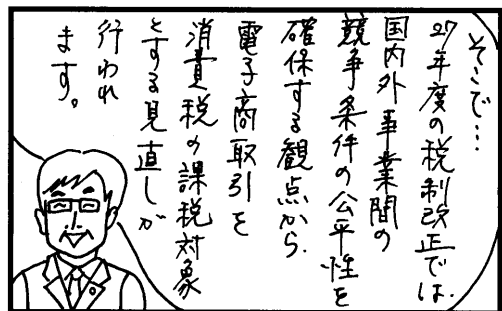 そこで…
27年度の税制改正では、
国内外事業間の
競争条件の公平性を
確保する観点から、
電子商取引を
消費税の課税対象
とする見直しが
行われ
ます。